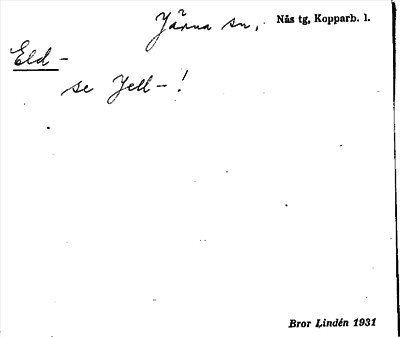 Järna sn, Nås tg, Kopparb. l.
Eld -
se Jell - !
Bror Lindén 1931